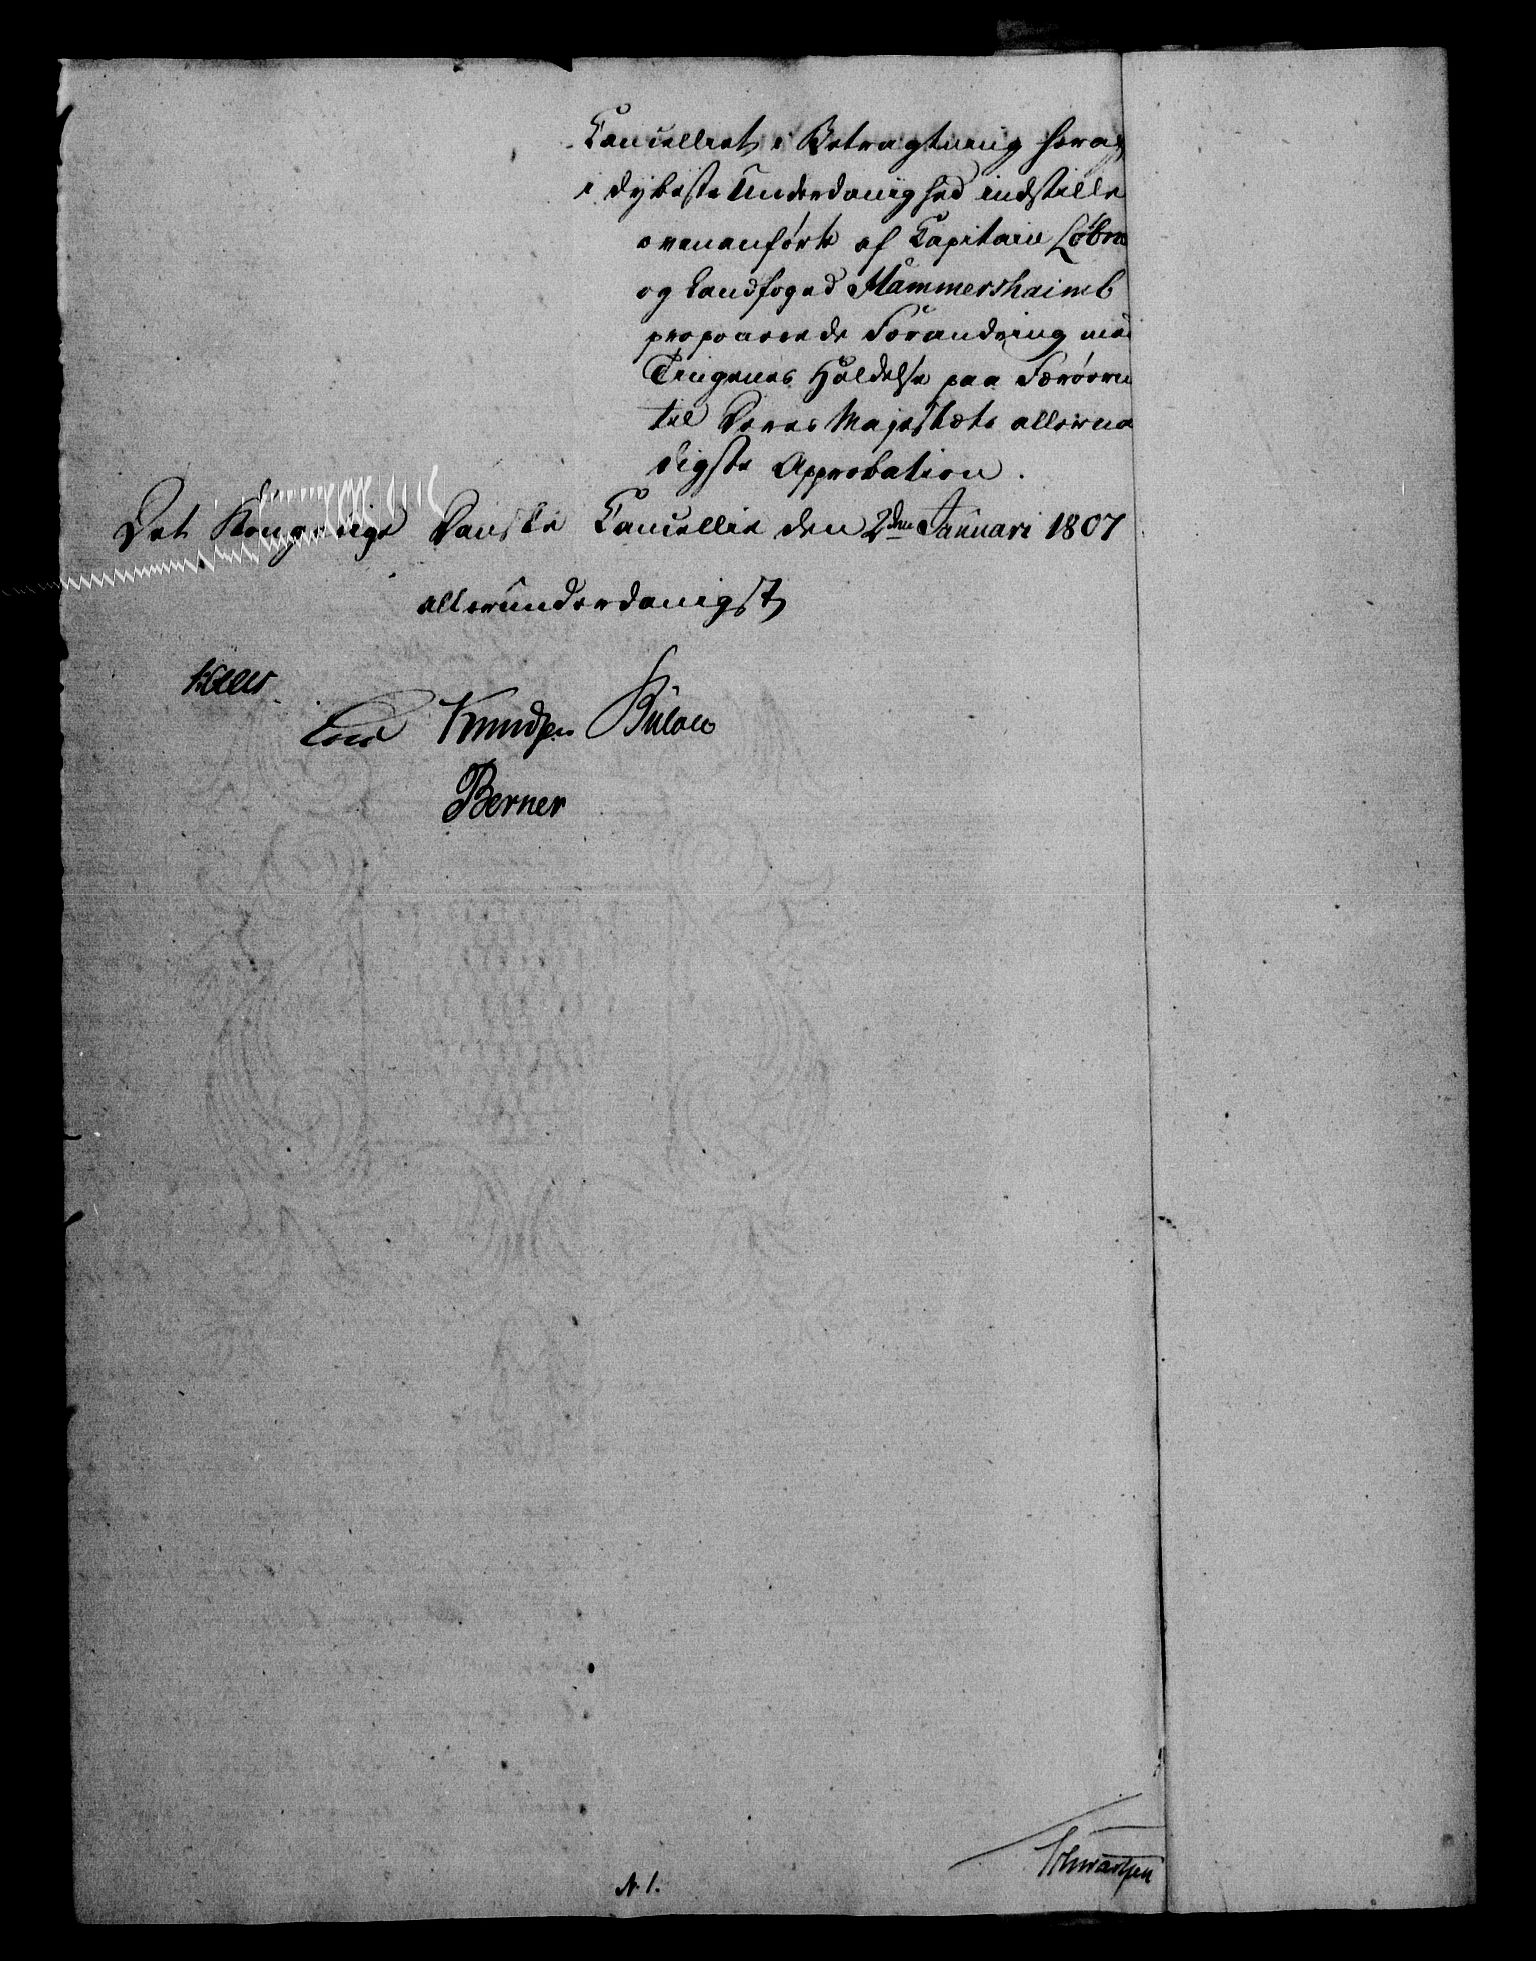 Cancelliet i Betragtning heraf
i dybeste Underdanighed indstille
ovenanførte af Capitain Løbne
og Landfoged Hammershaimb
proponerede Forandring med
Tingenes Holdelse paa Færøern
til Deres Majestæts allerna
digste Approbation.
Det Kongelige Danske Cancellie den 2den Januari 1807
allerunderdanigst
Kaas
Knudsen Bülow
Berner
Schwartzen
N. 1.